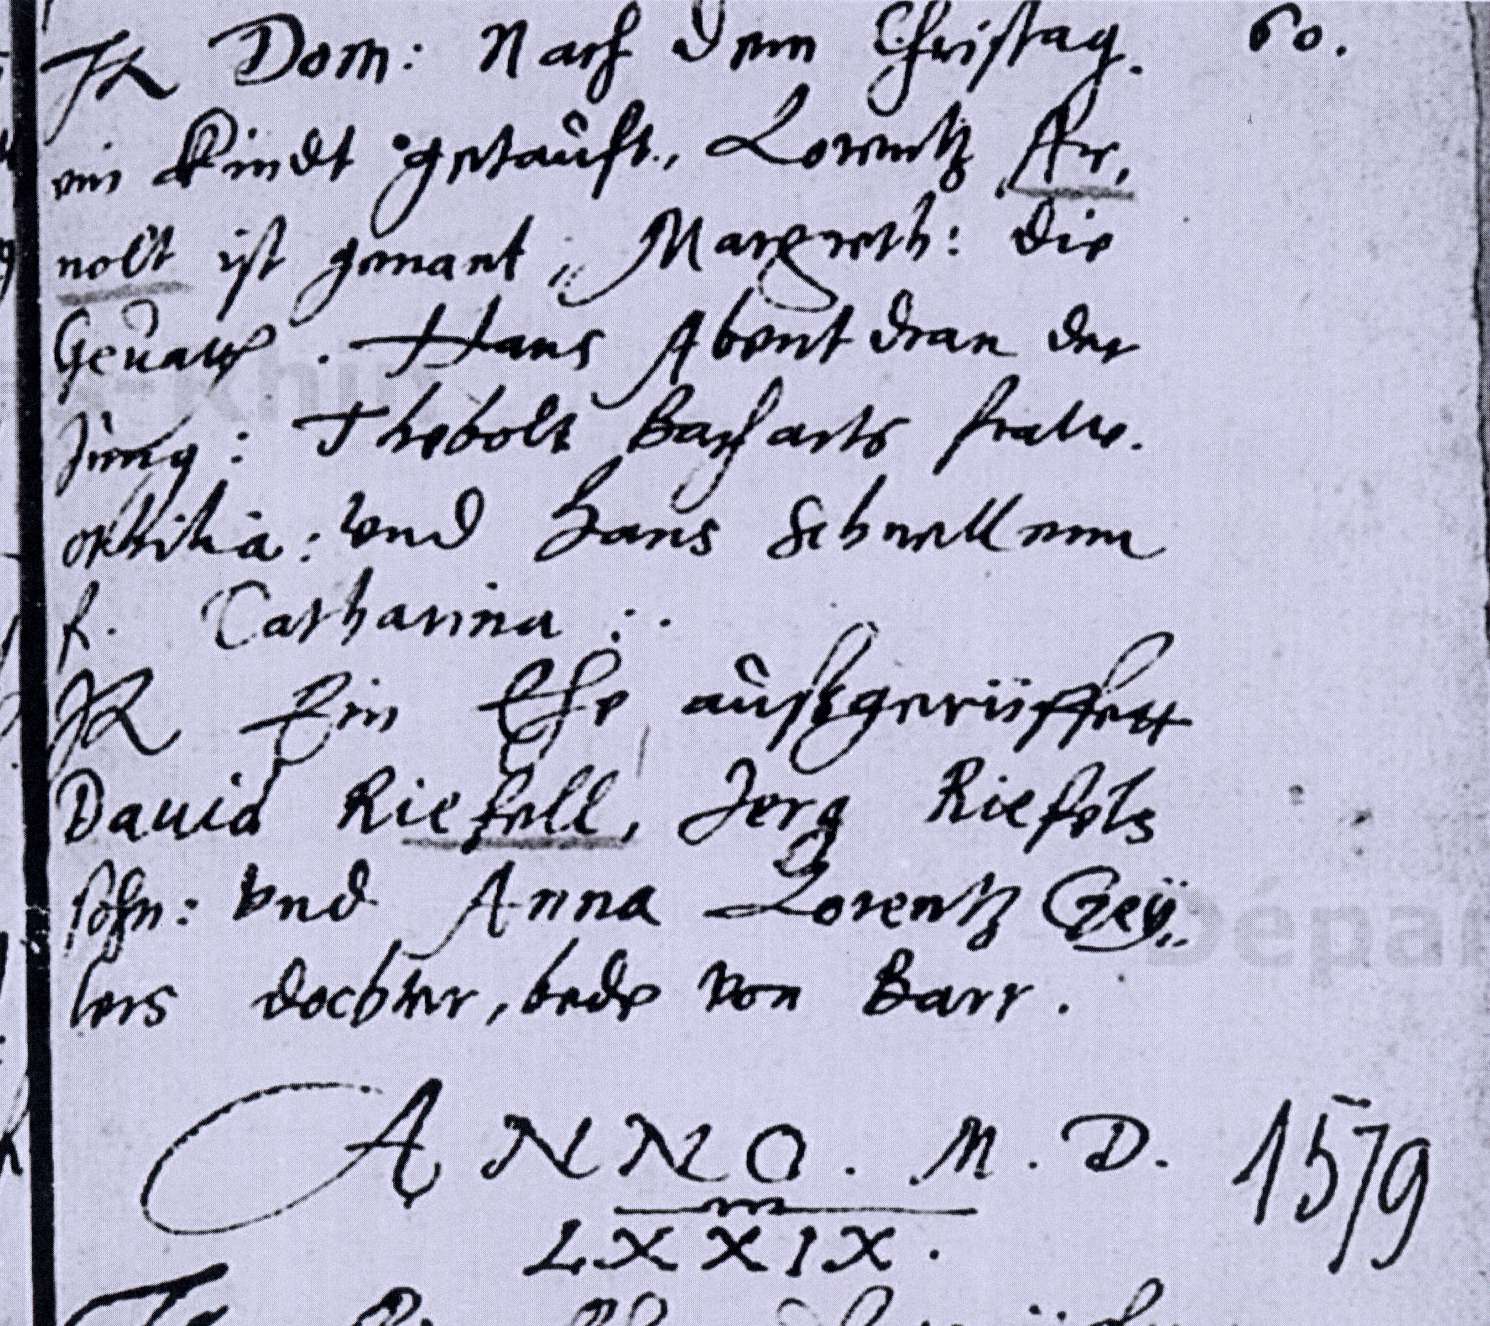 Dom: Nach dem Christag. 60.
ein Kindt getaufft, Lorentz Ar,
nolt ist genant, Margreth: die
Geuatt. Hans Abent dran der
Jung: Thebolt Bacharts fraw.
ottilia: vnd Hans Schnell
f. Catharina :.
Ein Ehe außgerüffett
Dauid Riefell, Jerg Riefels
sohn: vnd Anna Lorentz Geÿ,,
lers dochter, bede von Barr.
ANNO. M. D. 1579
LXXIX.
Dépar